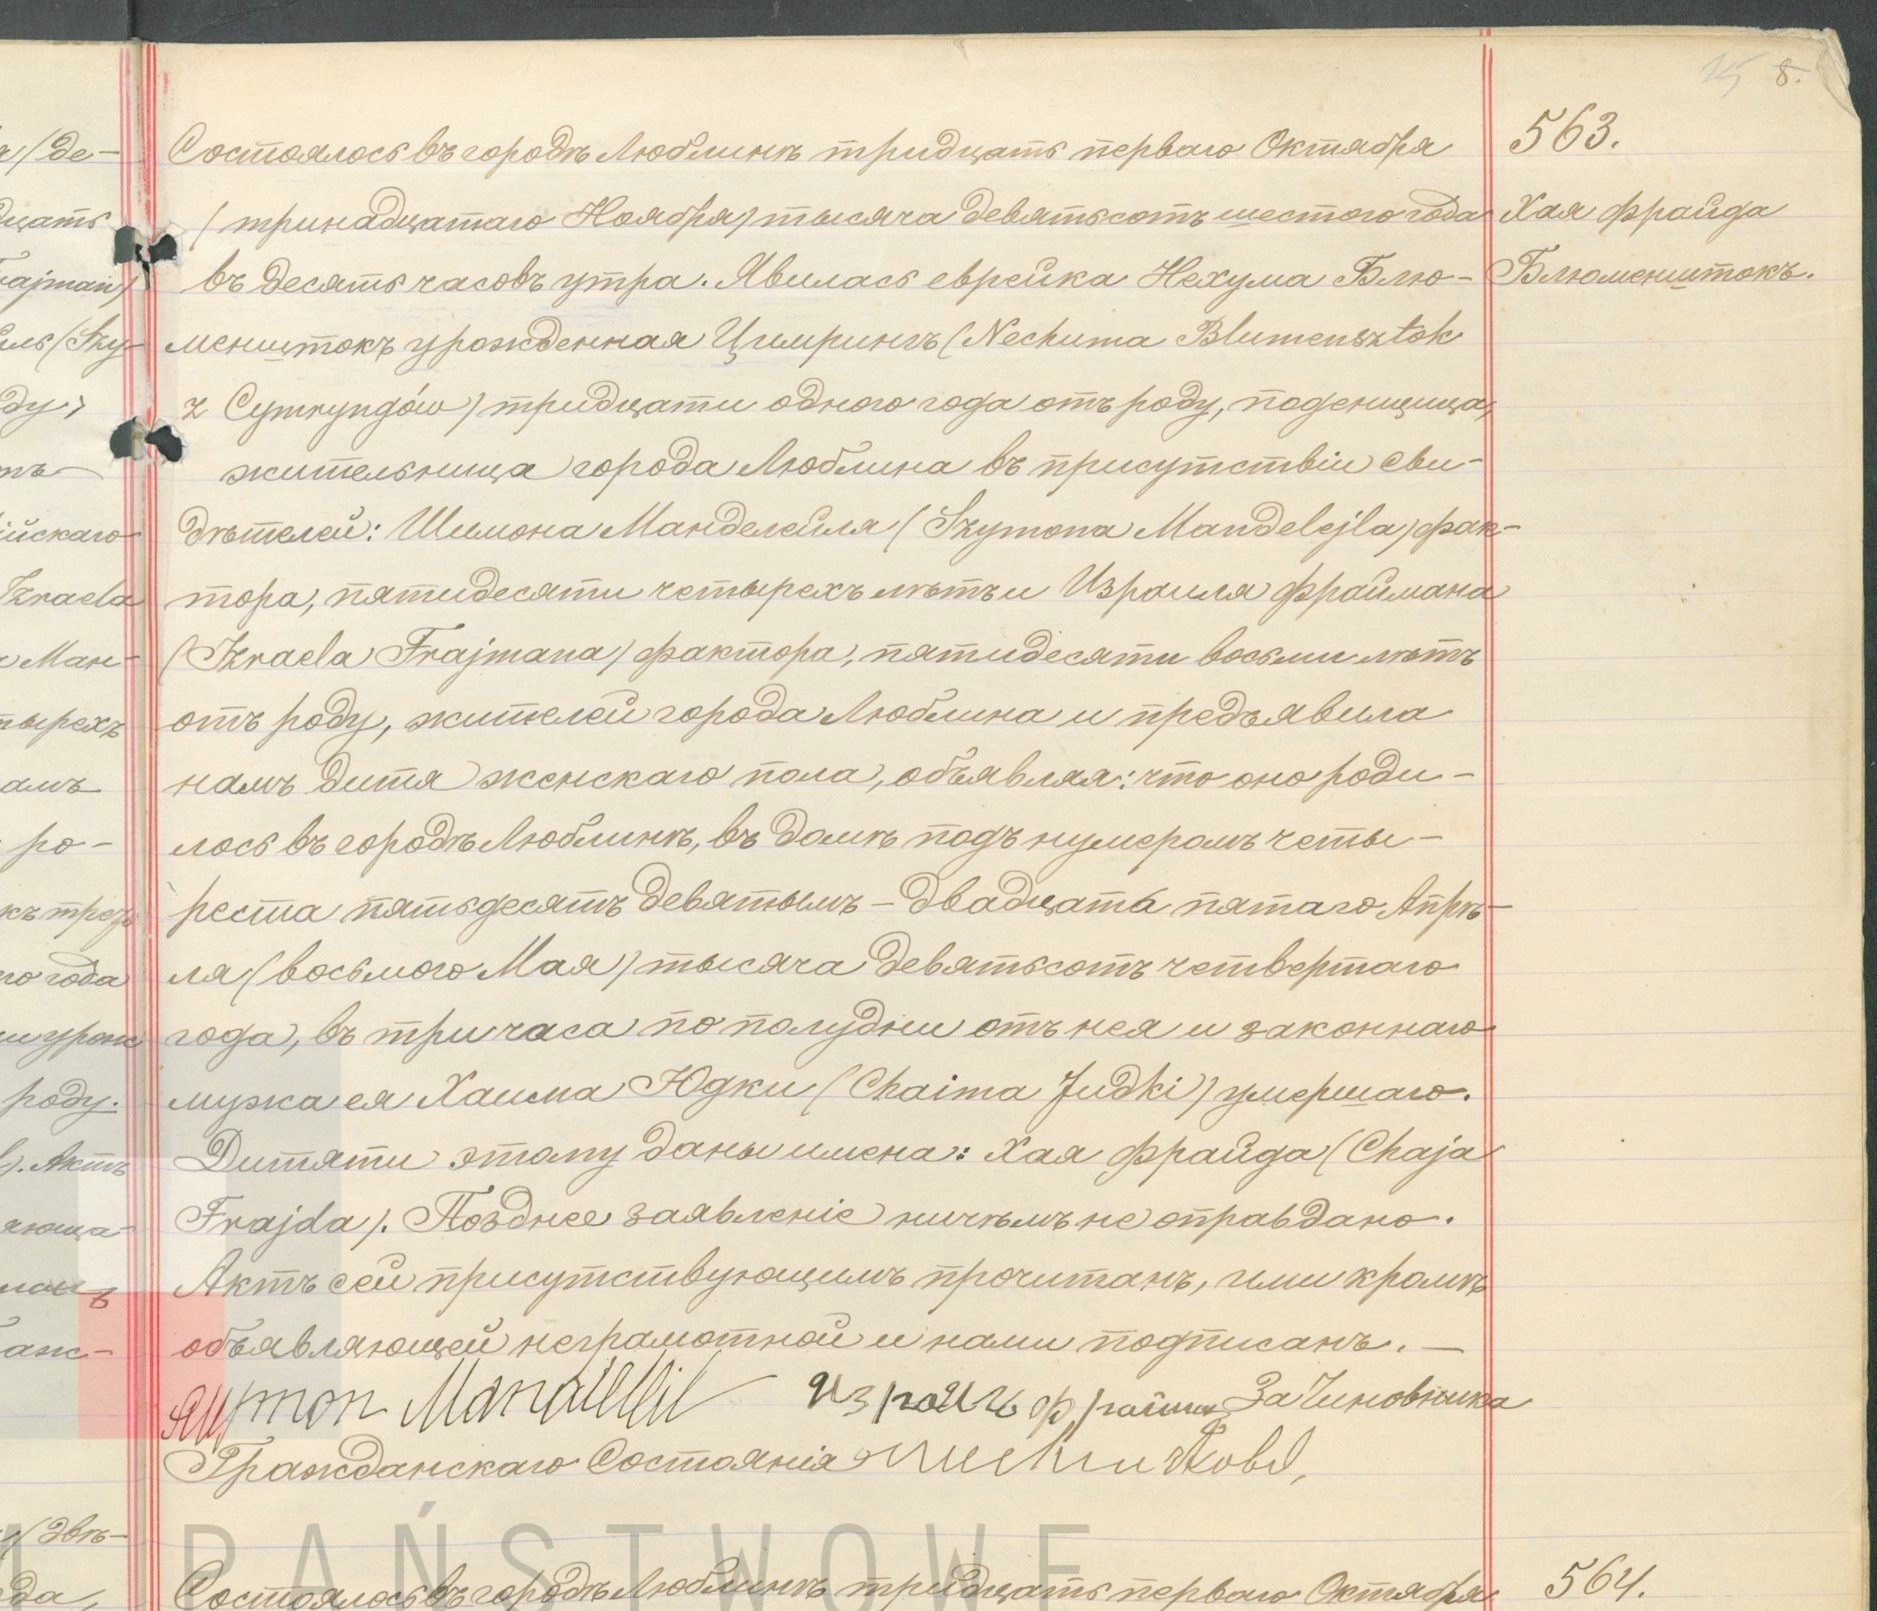 8.
563.
Хая Фрайда
Блюменштокъ.
Состоялось въ городѣ Люблинѣ тридцать перваго Октября
(тринадцатаго Ноября) тысяча девятьсотъ шестого года
въ десять часовъ утра. Явилась еврейка Нехума Блю-
менштокъ урожденная Цимрингъ (Nechuma Blumensztok
z Cymryngów) тридцати одного года отъ роду, поденщица,
жительница города Люблина въ присутствіи сви-
дѣтелей: Шимона Манделейля (Szymona Mandelejla) фак-
тора, пятидесяти четырехъ лѣтъ и Израиля Фраймана
(Izraela Frajmana) фактора, пятидесяти восьми лѣтъ
отъ роду, жителей города Люблина и предъявила
намъ дитя женскаго пола, объявляя: что оно роди-
лось въ городѣ Люблинѣ, въ домѣ подъ нумеромъ четы-
реста пятьдесятъ девятымъ – двадцать пятаго Апрѣ-
ля (восьмого Мая) тысяча девятьсотъ четвертаго
года, въ три часа по полудни отъ нея и законнаго
мужа ея Хаима Юдки (Chaima Judki) умершаго.
Дитяти этому даны имена: Хая Фрайда (Chaja
Frajda). Позднее заявленіе ничѣмъ не оправдано.
Актъ сей присутствующимъ прочитанъ, ими кромѣ
объявляющей неграмотной и нами подписанъ. —
За Чиновника
Гражданскаго Состоянія
564.
Состоялось въ городѣ Люблинѣ тридцать перваго Октября
PAŃSTWOWE